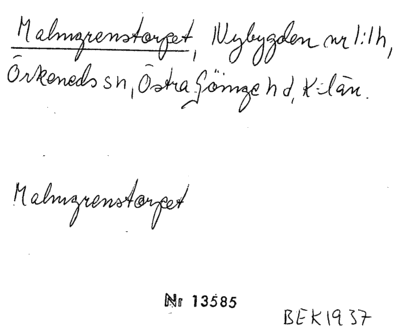 Malmgrenstorpet, Nybygden nr 1:1h,
Örkeneds sn, Östra Göinge hd, K:län.
Malmgrenstorpet
Nr 13585
BEK1937